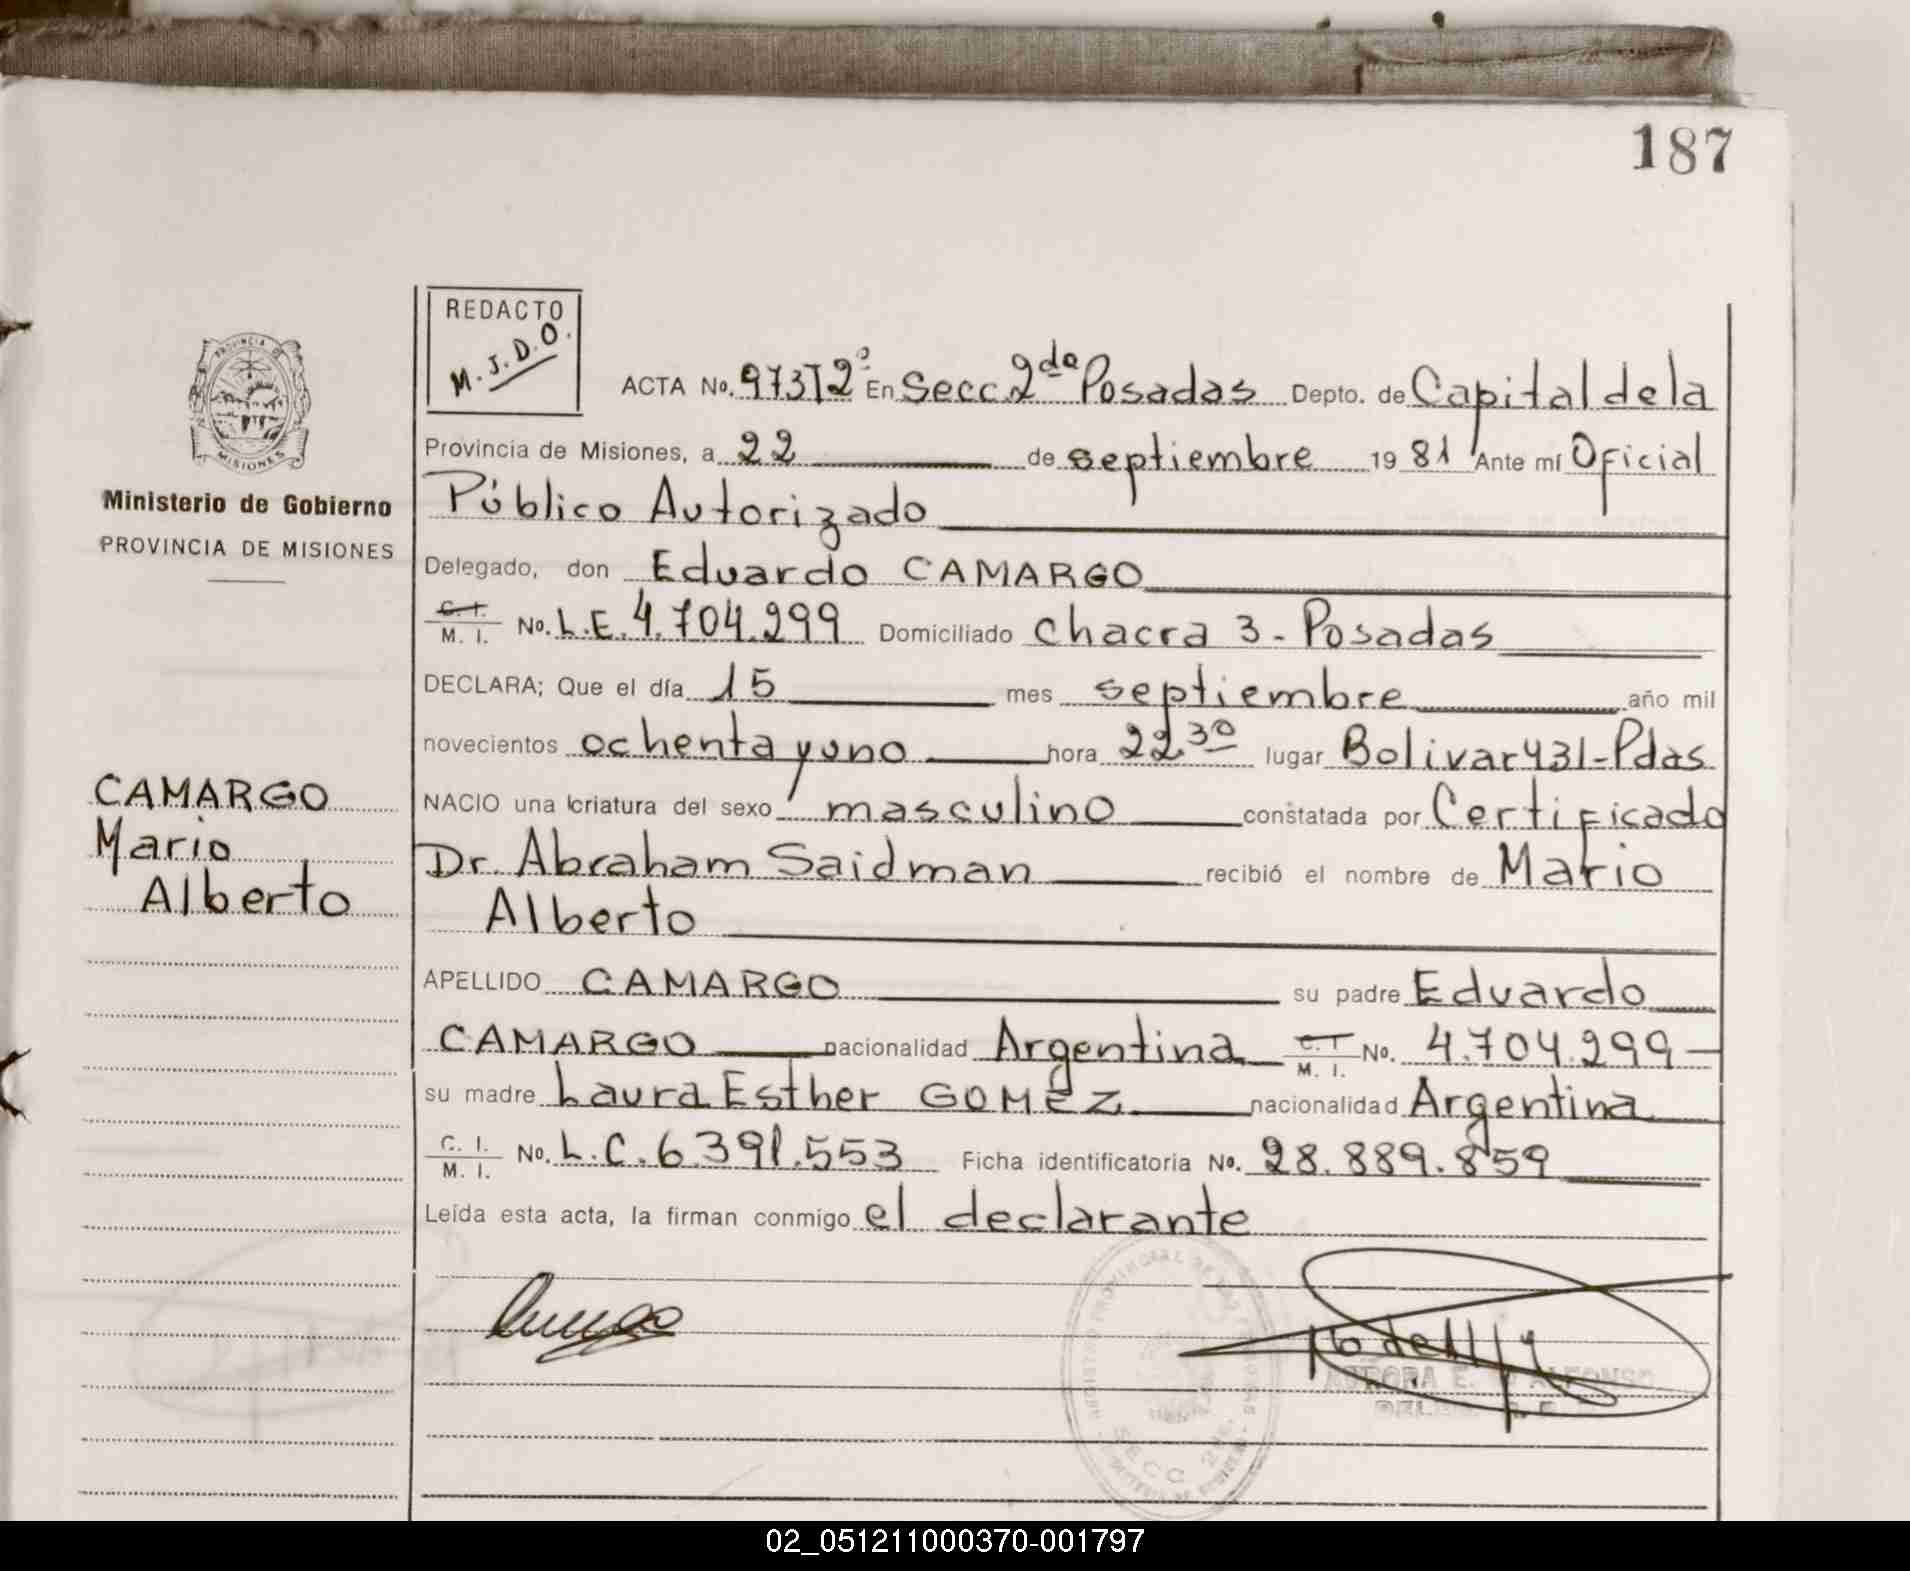 187
REDACTO
M.J.D.O.
ACTA No. 973T2º En Secc. 2da Posadas Depto. de Capital de la
Provincia de Misiones, a 22 de septiembre 19 81 Ante mí Oficial
Público Autorizado
Delegado, don Eduardo CAMARGO
C. I.
M. I. No. L.E. 4.704.299 Domiciliado Chacra 3 - Posadas
DECLARA; Que el día 15 mes septiembre año mil
novecientos ochenta y uno hora 22.30 lugar Bolivar 431 - Pdas
NACIO una criatura del sexo masculino constatada por Certificado
Dr. Abraham Saidman recibió el nombre de Mario
Alberto
APELLIDO CAMARGO su padre Eduardo
CAMARGO nacionalidad Argentina C. I.
M. I. No. 4.704.299
su madre Laura Esther GOMEZ nacionalidad Argentina
C. I.
M. I. No. L.C. 6.391.553 Ficha identificatoria No. 28.889.859
Leída esta acta, la firman conmigo el declarante
PROVINCIA DE
MISIONES
Ministerio de Gobierno
PROVINCIA DE MISIONES
CAMARGO
Mario
Alberto
REGISTRO PROVINCIAL DE LAS PERSONAS
SECC 2da.
AURORA E. ALFONSO
02_051211000370-001797